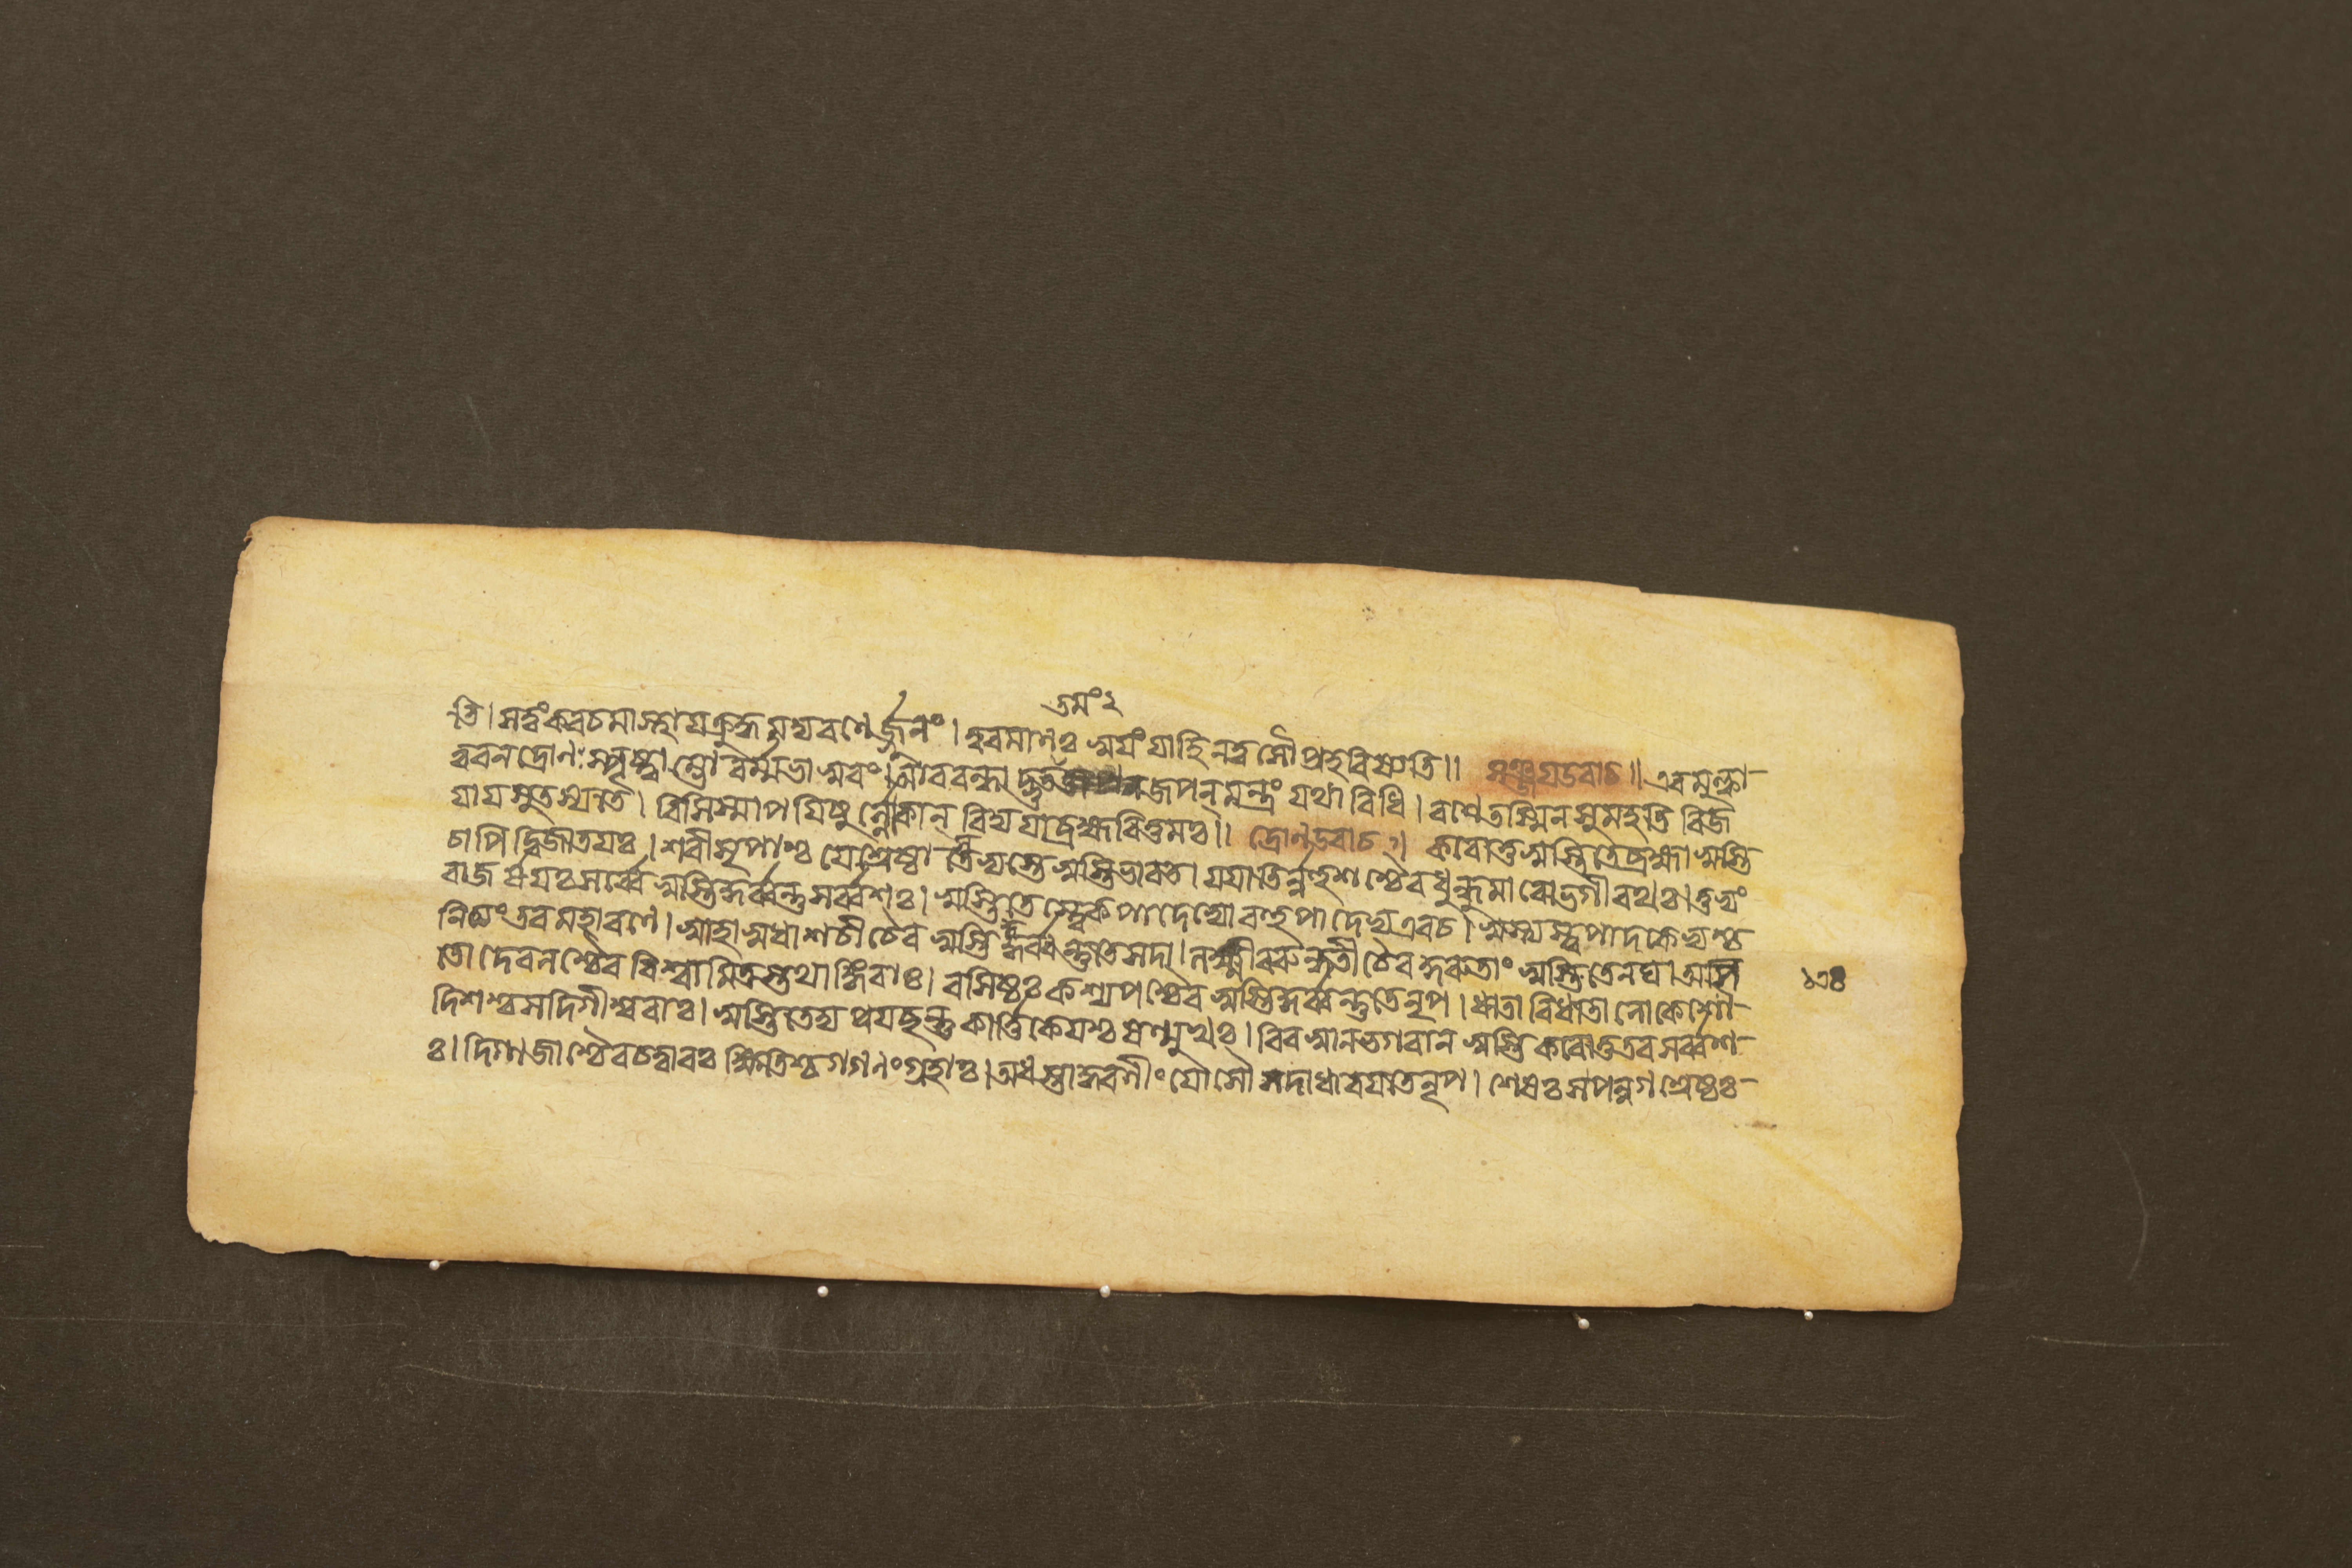 তমং২
তি। স ত্বং কবচমাস্থায় ক্রুদ্ধমদ্য রণেঽর্জ্জুনং। ত্বরমাণঃ স্বয়ং যাহি ন ত্বাসৌ প্রহবিষ্যতি॥ সঞ্জয় উবাচ॥ এবমুক্ত্বা
ত্বরন দ্রোণঃ স্পৃষ্ট্বাম্ভো বর্ম্ম ভাস্বরং। আববন্ধাদ্ভুত জপন্ মন্ত্রং যথাবিধি। রণে তস্মিন সুমহতি বিজ
য়ায় সুতস্য তে। বিসিস্মাপয়িষুর্ল্লোকান্ বিদ্যয়া ব্রহ্মবিত্তমঃ॥ দ্রোণ উবাচ॥ করোতু স্বস্তি তে ব্রহ্মা স্বস্তি
চাপি দ্বিজাতয়ঃ। শরীসৃপাশ্চ যে শ্রেষ্ঠাস্তেভ্যস্তে স্বস্তি ভারত। যযাতির্ন্নহুশশ্চৈব ধুন্ধুমারো ভগীরথঃ। তুভ্যং
রাজর্ষয়ঃ সর্ব্বে স্বস্তি কুর্ব্বন্তু সর্ব্বশঃ। স্বস্তি তে স্ত্বেকপাদেভ্যো বহুপাদেভ্য এব চ। স্বস্ত্যস্ত্বপাদকেভ্যশ্চ
নিত্যং তব মহারণে। স্বাহা স্বধা শচী চৈব স্বস্তি কুর্ব্বন্তু তে সদা। লক্ষ্মীররুন্ধতী চৈব কুরুতাং স্বস্তি তেনঘ। অসি
তো দেবলশ্চৈব বিশ্বামিত্রস্তথাঙ্গিরাঃ। বসিষ্ঠঃ কশ্যপশ্চৈব স্বস্তি কুর্ব্বন্তু তে নৃপ। ধাতা বিধাতা লোকেশো
দিশশ্চ সদিগীশ্বরাঃ। স্বস্তি তেদ্য প্রযছন্তু কার্ত্তিকেয়শ্চ ষণ্মুখঃ। বিবস্বান ভগবান স্বস্তি করোতু তব সর্ব্বশ
ঃ। দিগ্গজাশ্চৈব চত্বারঃ ক্ষিতিশ্চ গগণং গ্রহাঃ। অধস্তাদ্ধরণীং যোসৌ সদা ধারয়তে নৃপ। শেষঃ স পন্নগশ্রেষ্ঠঃ